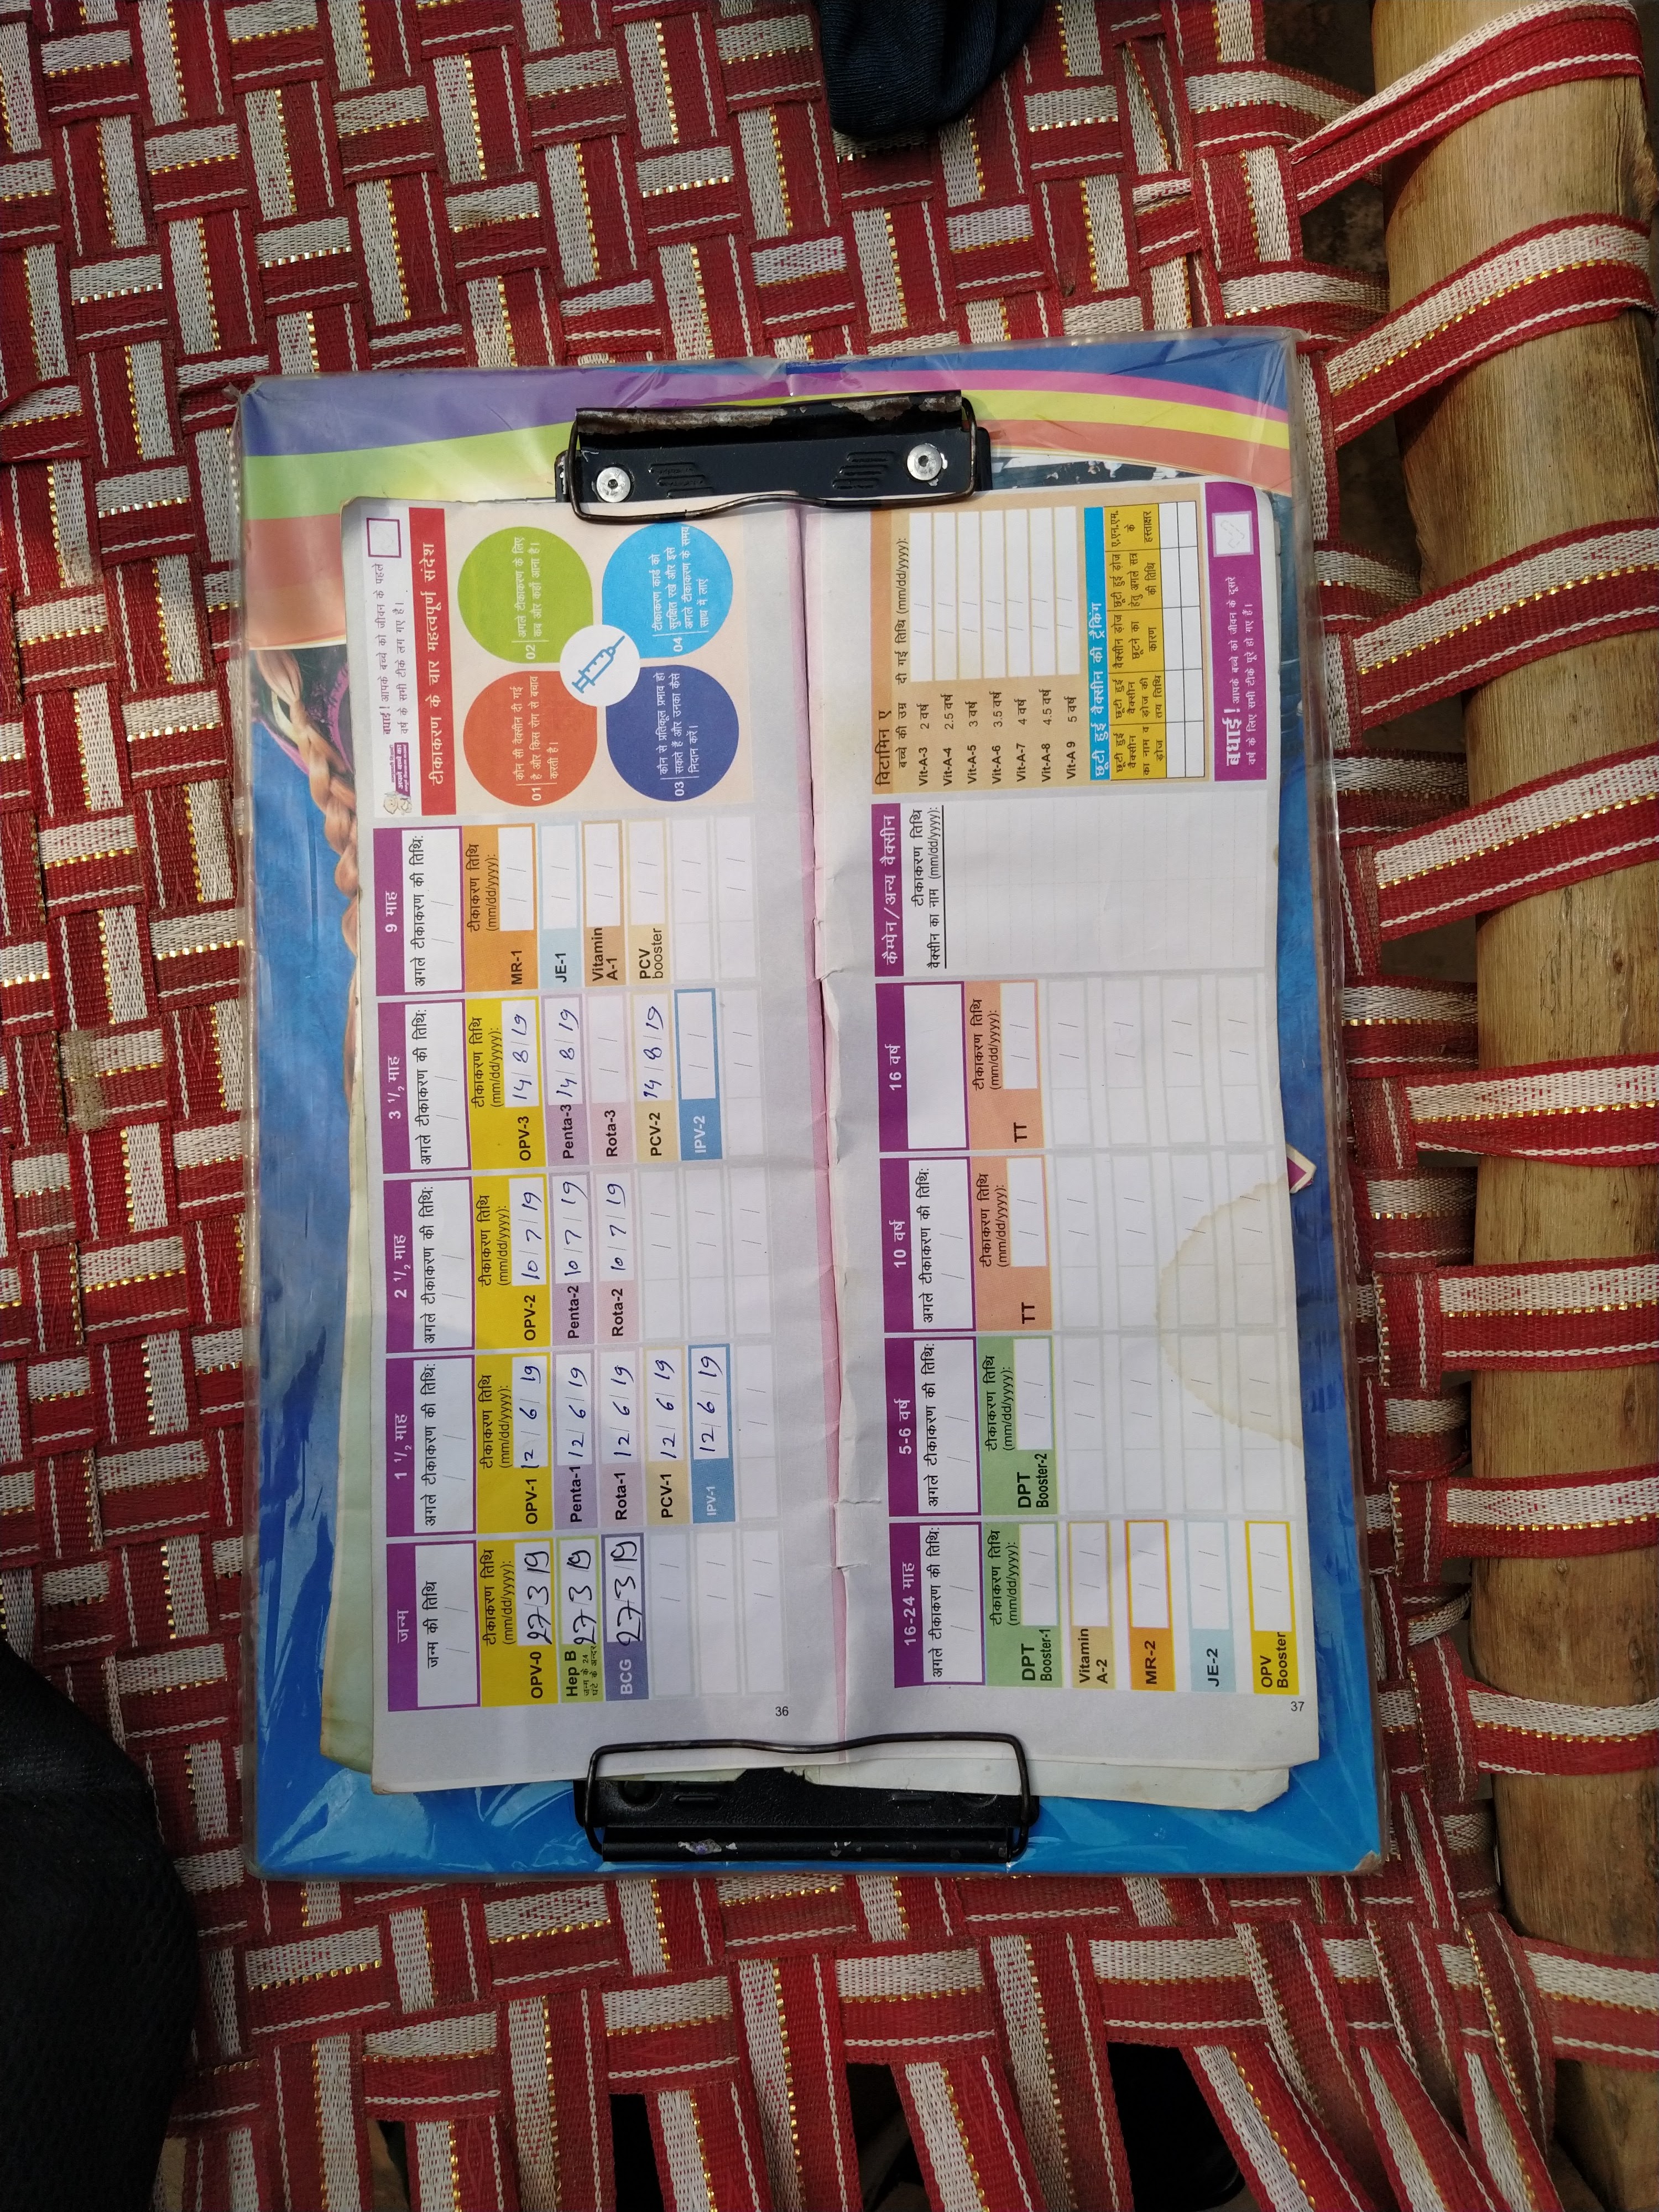 जन्म
जन्म की तिथि
/ /
टीकाकरण तिथि
(mm/dd/yyyy):
OPV-0 27 3 19
Hep B 27 3 19
जन्म के 24
घंटे के अन्दर
BCG 27 3 19
1 1/2 माह
अगले टीकाकरण की तिथि:
/ /
टीकाकरण तिथि
(mm/dd/yyyy):
OPV-1 12/6/19
Penta-1 12/6/19
Rota-1 12/6/19
PCV-1 12/6/19
IPV-1 12/6/19
2 1/2 माह
अगले टीकाकरण की तिथि:
/ /
टीकाकरण तिथि
(mm/dd/yyyy):
OPV-2 10/7/19
Penta-2 10/7/19
Rota-2 10/7/19
3 1/2 माह
अगले टीकाकरण की तिथि:
/ /
टीकाकरण तिथि
(mm/dd/yyyy):
OPV-3 14/8/19
Penta-3 14/8/19
Rota-3 / /
PCV-2 14/8/19
IPV-2 / /
9 माह
अगले टीकाकरण की तिथि:
/ /
टीकाकरण तिथि
(mm/dd/yyyy):
MR-1 / /
JE-1 / /
Vitamin
A-1 / /
PCV
booster / /
बधाई! आपके बच्चे को जीवन के पहले
वर्ष के सभी टीके लग गए है।
टीकाकरण के चार महत्वपूर्ण संदेश
01 कौन सी वैक्सीन दी गई
है और किस रोग से बचाव
करती है।
02 अगले टीकाकरण के लिए
कब और कहाँ आना है।
03 कौन से प्रतिकूल प्रभाव हो
सकते हैं और उनका कैसे
निदान करें।
04 टीकाकरण कार्ड को
सुरक्षित रखे और इसे
अगले टीकाकरण के समय
साथ में लाएं
36
16-24 माह
अगले टीकाकरण की तिथि:
/ /
टीकाकरण तिथि
(mm/dd/yyyy):
DPT
Booster-1 / /
Vitamin
A-2 / /
MR-2 / /
JE-2 / /
OPV
Booster / /
5-6 वर्ष
अगले टीकाकरण की तिथि:
/ /
टीकाकरण तिथि
(mm/dd/yyyy):
DPT
Booster-2 / /
10 वर्ष
अगले टीकाकरण की तिथि:
/ /
टीकाकरण तिथि
(mm/dd/yyyy):
TT / /
16 वर्ष
टीकाकरण तिथि
(mm/dd/yyyy):
TT / /
कैम्पेन/अन्य वैक्सीन
टीकाकरण तिथि
वैक्सीन का नाम (mm/dd/yyyy):
विटामिन ए
बच्चे की उम्र दी गई तिथि (mm/dd/yyyy):
Vit-A-3 2 वर्ष / /
Vit-A-4 2.5 वर्ष / /
Vit-A-5 3 वर्ष / /
Vit-A-6 3.5 वर्ष / /
Vit-A-7 4 वर्ष / /
Vit-A-8 4.5 वर्ष / /
Vit-A 9 5 वर्ष / /
छूटी हुई वैक्सीन की ट्रैकिंग
छूटी हुई वैक्सीन का नाम व डोज
छूटी हुई वैक्सीन डोज की तय तिथि
वैक्सीन डोज छूटने का कारण
छूटी हुई डोज हेतु अगले सत्र की तिथि
ए.एन.एम. के हस्ताक्षर
बधाई! आपके बच्चे को जीवन के दूसरे
वर्ष के लिए सभी टीके पूरे हो गए है।
37